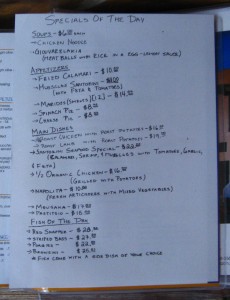 Specials Of The Day
Soups - $6.00 each
→ Chicken Noodle
→ Giouvarelakia
(Meat Balls with Rice in a Egg-Lemon Sauce)
Appetizers
→ Fried Calamari - $10.50
→ Mussels Santorini -
(with Feta & Tomatoes)
→ (12) - $14.50
→ Spinach Pie - $8.50
→ Cheese Pie - $8.50
Main Dishes
→ Roast Chicken with Roast Potatoes - $16.50
→ Roast Lamb with Roast Potatoes - $19.50
→ Santorini Seafood Special - $22.50
(Calamari, Shrimp, Mussels with Tomatoes, Garlic,
& Feta)
→ 1/2 Organic Chicken - $16.50
(Grilled with Potatoes)
→ - $10.50
(Fresh Artichokes with Mixed Vegetables)
→ Mousaka - $17.50
→ Pastitsio - $16.50
Fish Of The Day
→ Red Snapper - $28.50
→ Striped Bass - $27.50
→ - $22.50
→ Bronzini - $25.50
* Fish come with a side dish of your choice